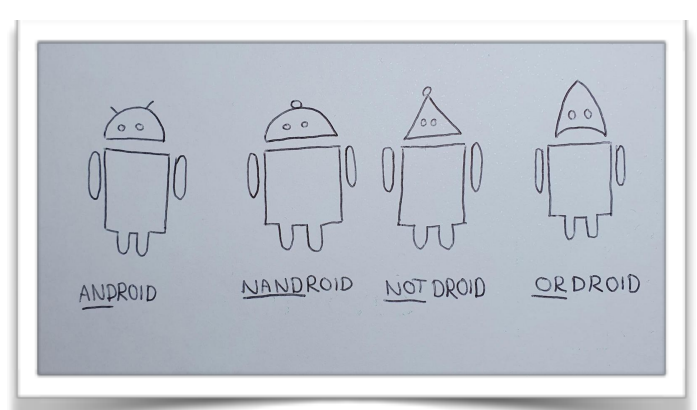 ANDROID NANDROID NOTDROID ORDROID